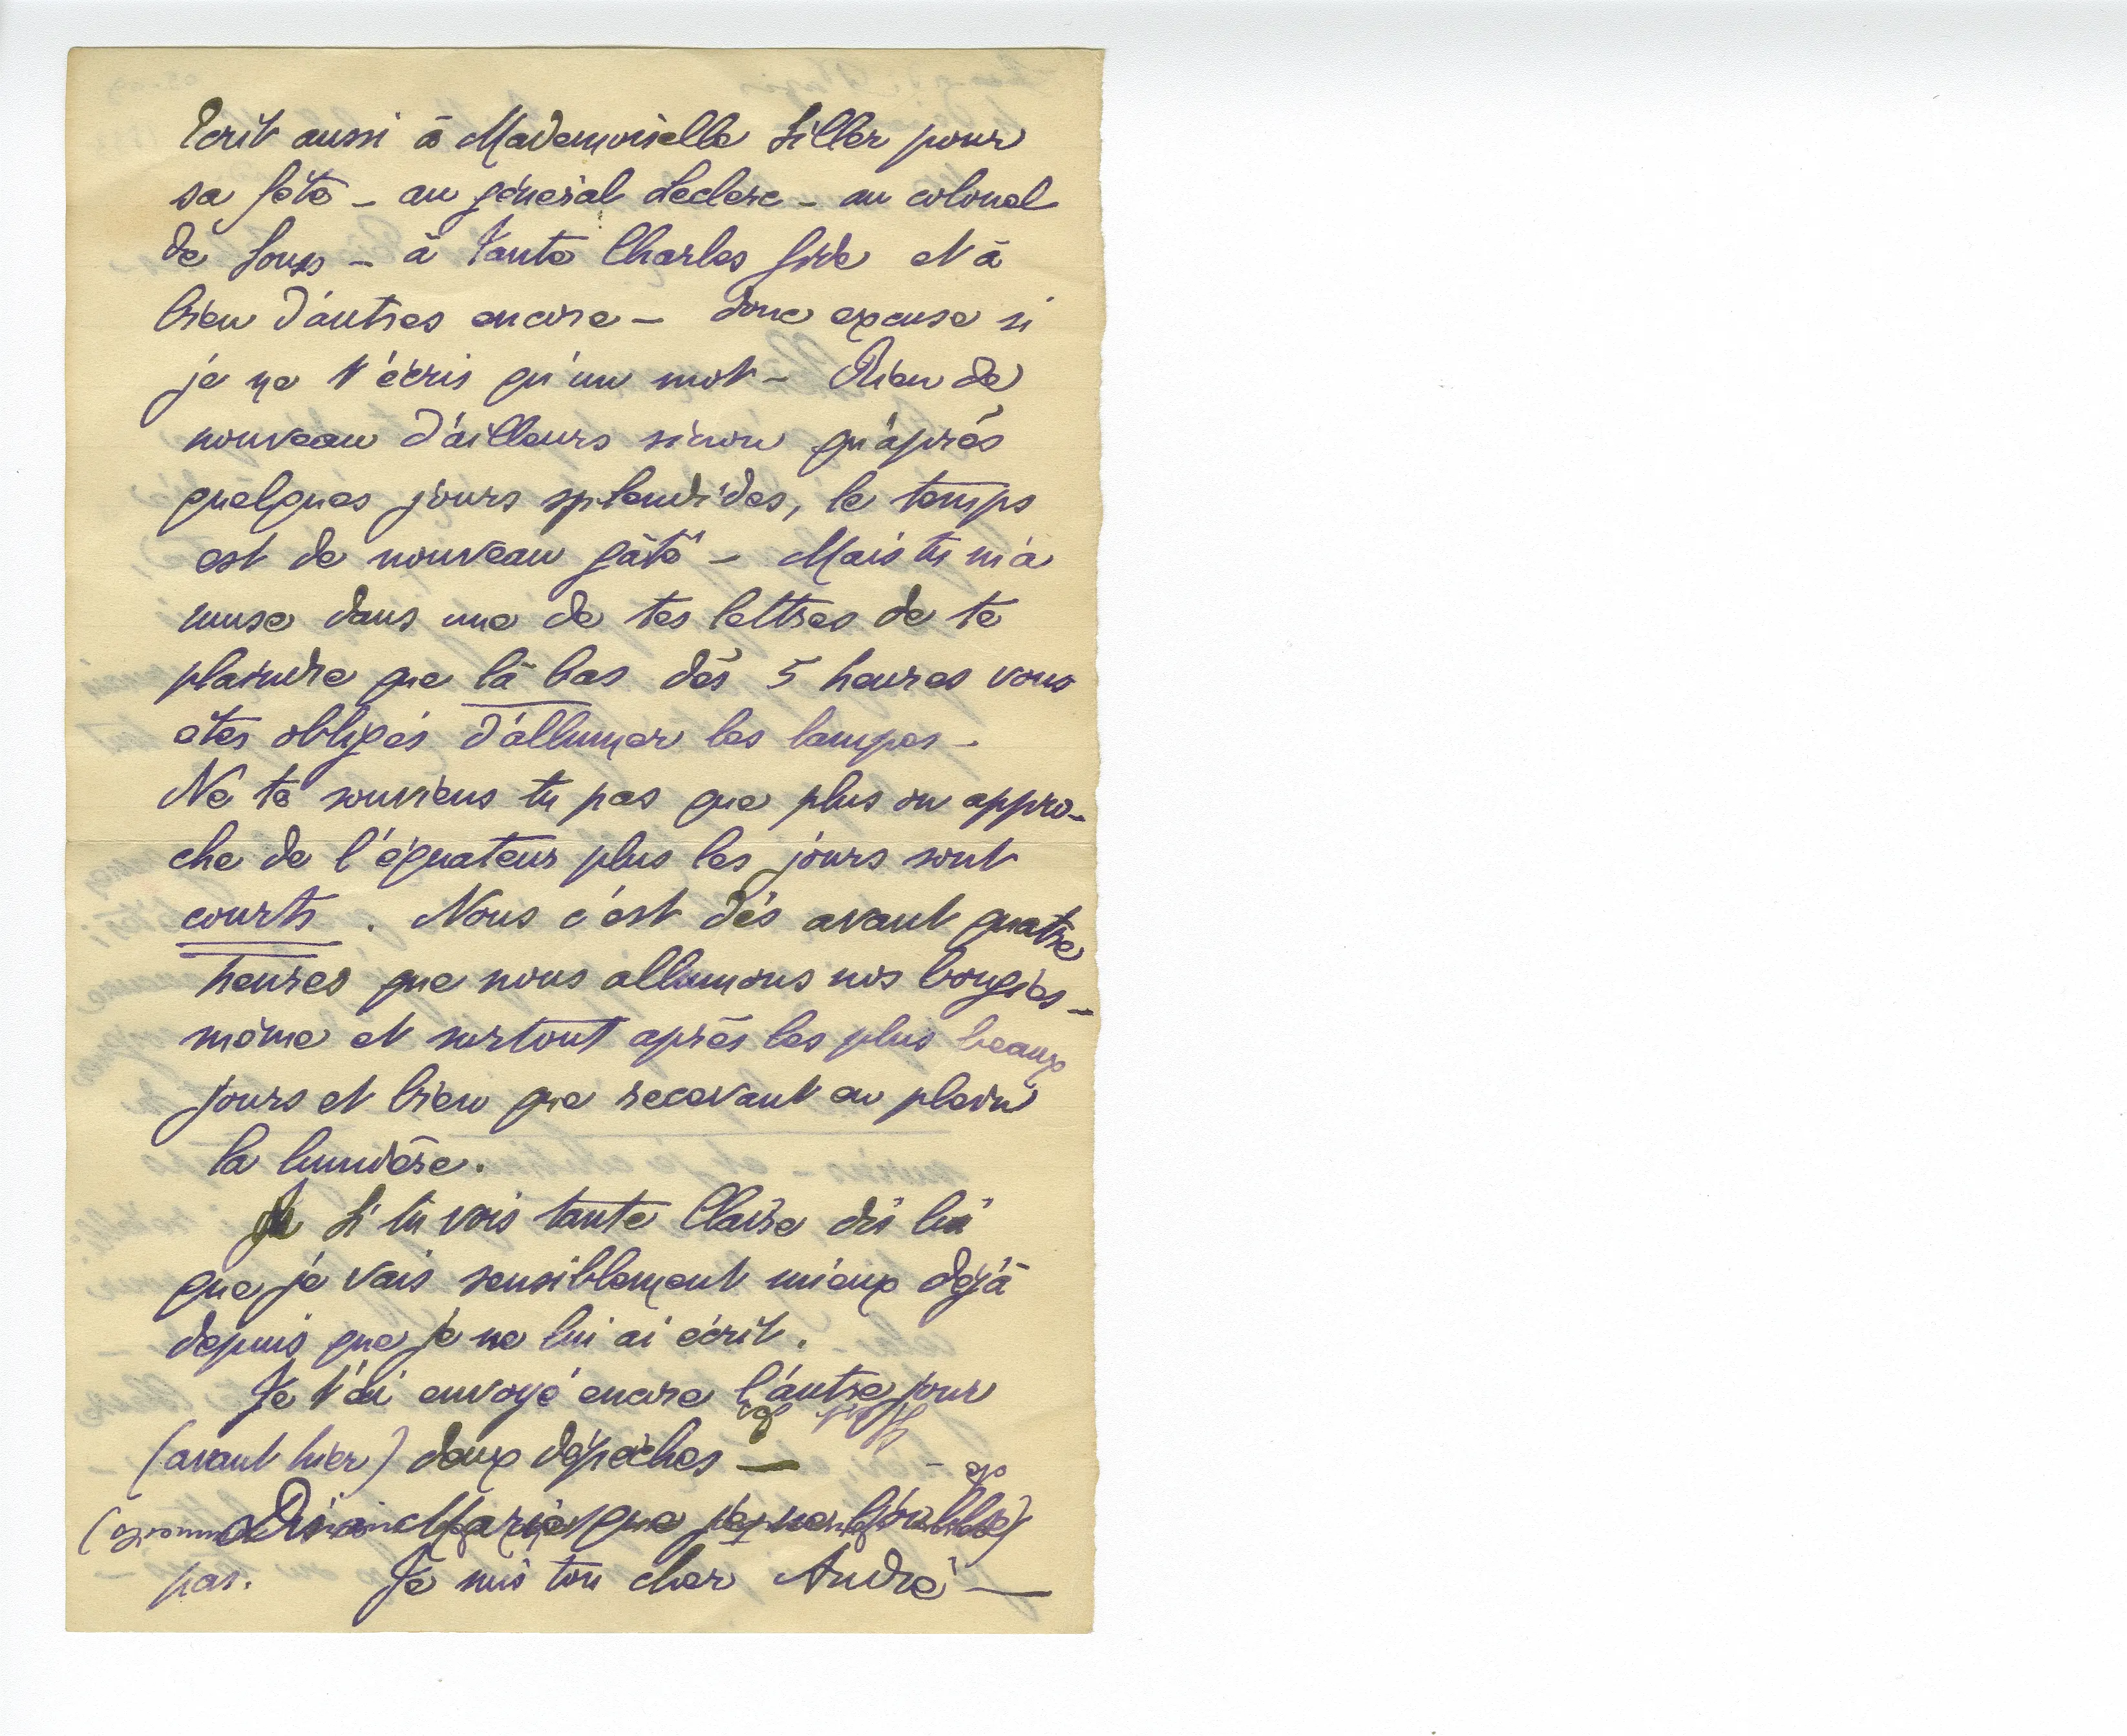 Écrit aussi à Mademoiselle Siller pour
sa fête – au général Leclerc – au colonel
de – à tante Charles Gide et à
bien d'autres encore – donc excuse si
je ne t'écris qu'un mot – Rien de
nouveau d'ailleurs sinon qu'après
quelques jours splendides, le temps
est de nouveau gâté – Mais tu m'a
muse dans une de tes lettres de te
plaindre que là bas dès 5 heures vous
êtes obligés d'allumer les lampes –
Ne te souviens tu pas que plus on appro-
che de l'équateur plus les jours sont
courts. Nous c'est dès avant quatre
heures que nous allumons nos bougies –
même et surtout après les plus beaux
jours et bien que recevant en plein
la lumière.
Si tu vois tante Claire dis lui
que je vais sensiblement mieux déjà
depuis que je ne lui ai écrit.
Je t'ai envoyé encore l'autre jour
(avant hier) deux dépêches —
Dis à Marie que je ne l'oublie
pas. Je suis ton cher André —